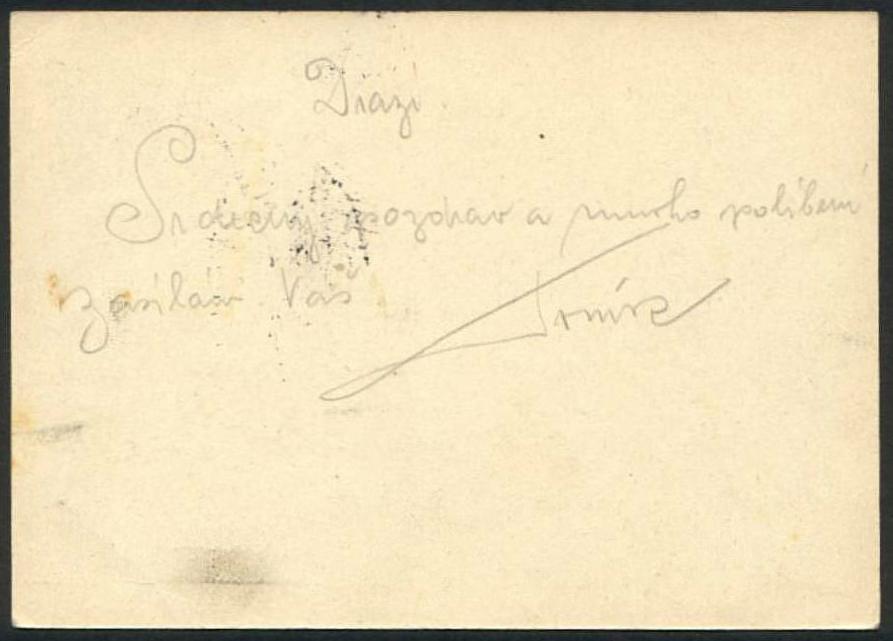 Drazí
Srdečný pozdrav a mnoho políbení
zasílám Váš